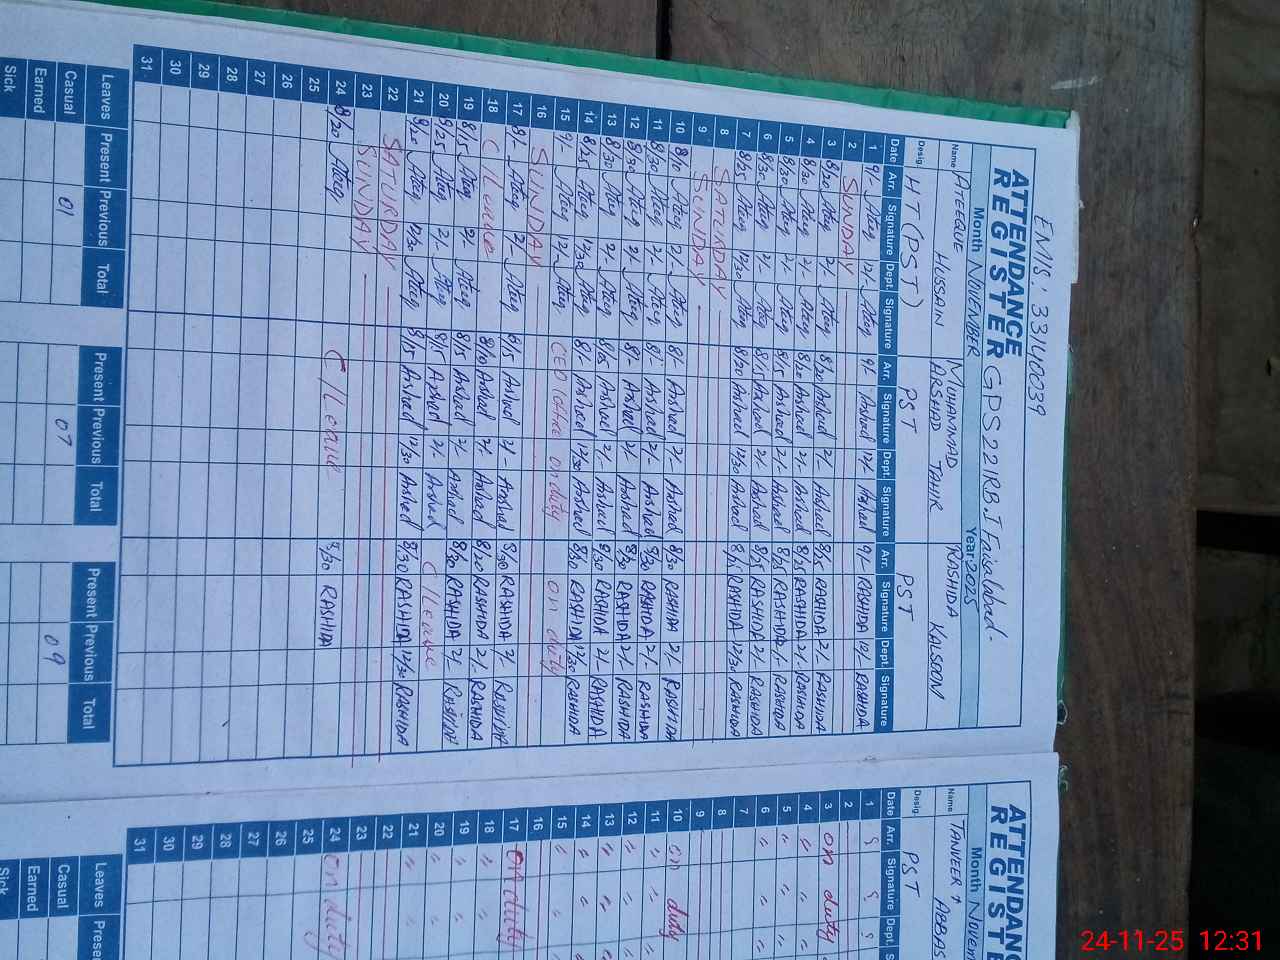 EMIS: 33140039
ATTENDANCE REGISTER GPS 221RB.I Faisalabad-
Month NOVEMBER Year 2025
Name ATEEQUE HUSSAIN MUHAMMAD ARSHAD TAHIR RASHIDA KALSOOM
Desig. HT (PST) PST PST
Date Arr. Signature Dept. Signature Arr. Signature Dept. Signature Arr. Signature Dept. Signature
1 9/- Ateeq 12/- Ateeq 9/- Arshad 12/- Arshad 9/- RASHIDA 12/- RASHIDA
2 SUNDAY
3 8/20 Ateeq 2/- Ateeq 8/20 Arshad 2/- Arshad 8/15 RASHIDA 2/- RASHIDA
4 8/30 Ateeq 2/- Ateeq 8/20 Arshad 2/- Arshad 8/25 RASHIDA 2/- RASHIDA
5 8/30 Ateeq 2/- Ateeq 8/15 Arshad 2/- Arshad 8/25 RASHIDA 2/- RASHIDA
6 8/30 Ateeq 2/- Ateeq 8/15 Arshad 2/- Arshad 8/25 RASHIDA 2/- RASHIDA
7 8/25 Ateeq 12/30 Ateeq 8/20 Arshad 12/30 Arshad RASHIDA 12/30 RASHIDA
8 SATURDAY
9 SUNDAY
10 8/10 Ateeq 2/- Ateeq 8/- Arshad 2/- Arshad 8/30 RASHIDA 2/- RASHIDA
11 8/30 Ateeq 2/- Ateeq 8/- Arshad 2/- Arshad 8/30 RASHIDA 2/- RASHIDA
12 8/30 Ateeq 2/- Ateeq 8/- Arshad 2/- Arshad 8/30 RASHIDA 2/- RASHIDA
13 8/30 Ateeq 2/- Ateeq Arshad 2/- Arshad 8/30 RASHIDA 2/- RASHIDA
14 8/25 Ateeq 12/30 Ateeq 8/- Arshad 12/30 Arshad 8/10 RASHIDA 12/30 RASHIDA
15 9/- Ateeq 12/- Ateeq CEO office on duty on duty
16 SUNDAY
17 9/- Ateeq 2/- Ateeq 8/15 Arshad 2/- Arshad 8/30 RASHIDA 2/- RASHIDA
18 C/Leave 8/10 Arshad 2/- Arshad 8/10 RASHIDA 2/- RASHIDA
19 8/15 Ateeq 2/- Ateeq 8/15 Arshad 2/- Arshad 8/30 RASHIDA 2/- RASHIDA
20 8/25 Ateeq 2/- Ateeq 8/15 Arshad 2/- Arshad C/Leave
21 8/20 Ateeq 12/30 Ateeq 8/15 Arshad 12/30 Arshad 8/30 RASHIDA 12/30 RASHIDA
22 SATURDAY
23 SUNDAY
24 8/20 Ateeq C/Leave 8/30 RASHIDA
25
26
27
28
29
30
31
Leaves Present Previous Total Present Previous Total Present Previous Total
Casual 01 07 09
Earned
Sick
ATTENDANCE REGISTER
Month Novem
Name TANVEER ABBAS
Desig. PST
Date Arr. Signature Dept.
1
2
3 on duty
4 " " "
5 " " "
6 " " "
7
8
9
10 on duty
11 " " "
12 " " "
13 " " "
14 " " "
15 " " "
16
17 on duty
18 " "
19 " "
20 " "
21 " "
22
23
24 on duty
25
26
27
28
29
30
31
Leaves Prese
Casual
Earned
Sick
24-11-25 12:31